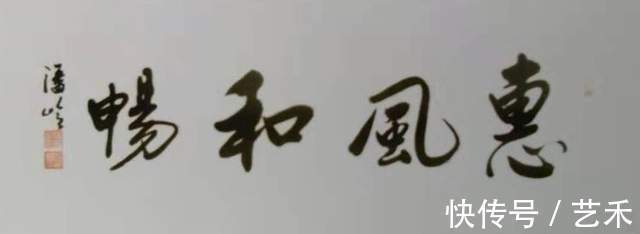 惠風和暢
潘岭
快传号 / 艺禾